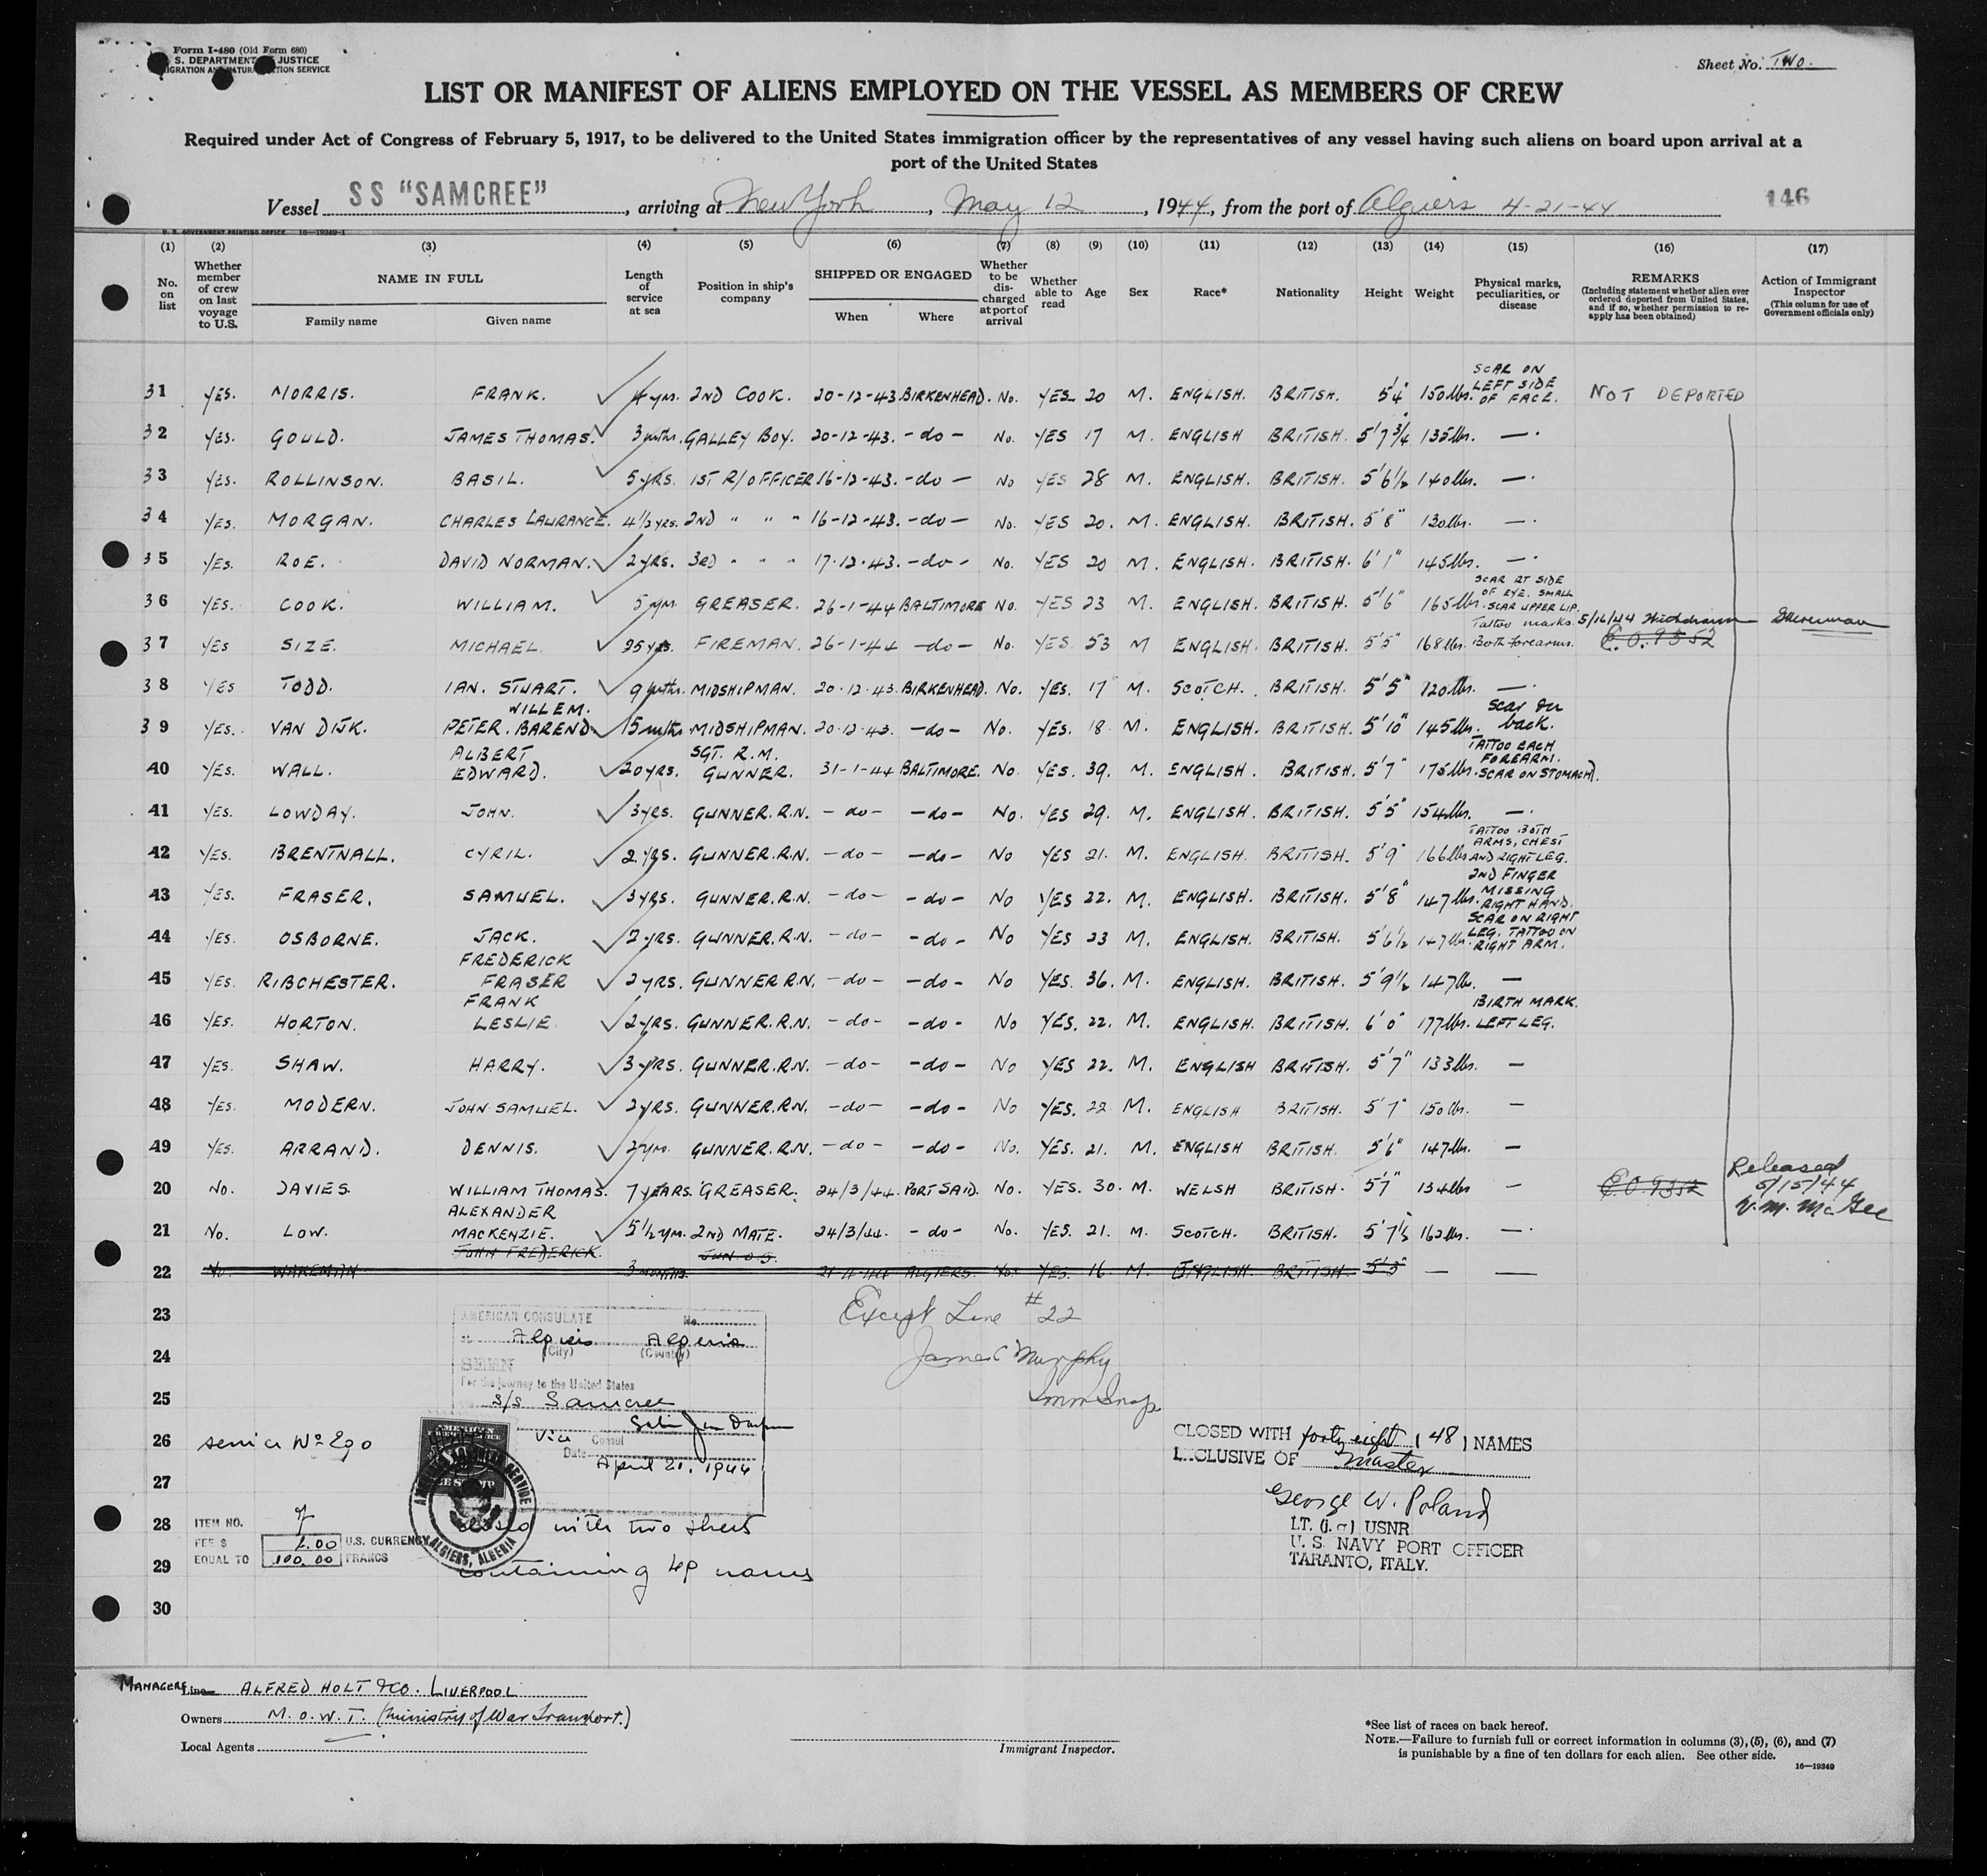 Form I-480 (Old Form 680)
S. DEPARTMENT JUSTICE
Sheet No. TWO.
LIST OR MANIFEST OF ALIENS EMPLOYED ON THE VESSEL AS MEMBERS OF CREW
Required under Act of Congress of February 5, 1917, to be delivered to the United States immigration officer by the representatives of any vessel having such aliens on board upon arrival at a
port of the United States
Vessel SS "SAMCREE", arriving at New York, May 12, 1944, from the port of Algiers 4-21-44 146
U. S. GOVERNMENT PRINTING OFFICE 16—19349-1
(1) (2) (3) (4) (5) (6) (7) (8) (9) (10) (11) (12) (13) (14) (15) (16) (17)
No. on list
Whether member of crew on last voyage to U.S.
NAME IN FULL
Family name Given name
Length of service at sea
Position in ship's company
SHIPPED OR ENGAGED
When Where
Whether to be discharged at port of arrival
Whether able to read
Age Sex Race* Nationality Height Weight
Physical marks, peculiarities, or disease
REMARKS
(Including statement whether alien ever ordered deported from United States, and if so, whether permission to re-apply has been obtained)
Action of Immigrant Inspector
(This column for use of Government officials only)
31 YES. MORRIS. FRANK. 4 yrs. 2ND COOK. 20-12-43. BIRKENHEAD. No. YES 20 M. ENGLISH. BRITISH. 5'4" 150 lbs. SCAR ON LEFT SIDE OF FACE. NOT DEPORTED
32 YES. GOULD. JAMES THOMAS. 3 mths. GALLEY BOY. 20-12-43. -do- No. YES 17 M. ENGLISH BRITISH. 5'7 3/4 135 lbs. —.
33 YES. ROLLINSON. BASIL. 5 YRS. 1ST R/OFFICER 16-12-43. -do- No YES 28 M. ENGLISH. BRITISH. 5'6½ 140 lbs. —.
34 YES. MORGAN. CHARLES LAURANCE. 4½ YRS. 2ND " " " 16-12-43. -do- No. YES 20. M. ENGLISH. BRITISH. 5'8" 130 lbs. —.
35 YES. ROE. DAVID NORMAN. 2 YRS. 3RD " " " 17-12-43. -do- No. YES 20 M. ENGLISH. BRITISH. 6'1" 145 lbs. —.
36 YES. COOK. WILLIAM. 5 yrs. GREASER. 26-1-44 BALTIMORE No. YES 23 M. ENGLISH. BRITISH. 5'6" 165 lbs. SCAR RT SIDE OF EYE. SMALL SCAR UPPER LIP.
37 YES SIZE. MICHAEL. 25 yrs. FIREMAN. 26-1-44 -do- No. YES 53 M ENGLISH. BRITISH. 5'5" 168 lbs. Tattoo marks. Both forearms. 5/16/44 Withdrawn E.O. 9352
38 YES TODD. IAN. STUART. 9 mths. MIDSHIPMAN. 20.12.43. BIRKENHEAD. No. YES. 17 M. SCOTCH. BRITISH. 5'5" 120 lbs. —.
39 YES. VAN DIJK. WILLEM. PETER. BAREND 15 mths MIDSHIPMAN. 20.12.43. -do- No. YES. 18. M. ENGLISH. BRITISH. 5'10" 145 lbs. Scar on back.
40 YES. WALL. ALBERT EDWARD. 20 YRS. SGT. R.M. GUNNER. 31-1-44 BALTIMORE. No. YES. 39. M. ENGLISH. BRITISH. 5'7" 175 lbs. TATTOO EACH FOREARM. SCAR ON STOMACH.
41 YES. LOWDAY. JOHN. 3 YRS. GUNNER. R.N. -do- -do- No. YES 29. M. ENGLISH. BRITISH. 5'5" 154 lbs. —.
42 YES. BRENTNALL. CYRIL. 2 YRS. GUNNER. R.N. -do- -do- No YES 21. M. ENGLISH. BRITISH. 5'9" 166 lbs TATTOO BOTH ARMS, CHEST AND RIGHT LEG.
43 YES. FRASER. SAMUEL. 3 YRS. GUNNER. R.N. -do- -do- No YES 22. M. ENGLISH. BRITISH. 5'8" 147 lbs. 2ND FINGER MISSING RIGHT HAND.
44 YES. OSBORNE. JACK. 2 YRS. GUNNER. R.N. -do- -do- No YES 23 M. ENGLISH. BRITISH. 5'6½ 147 lbs. SCAR ON RIGHT LEG. TATTOO ON RIGHT ARM.
45 YES. RIBCHESTER. FREDERICK FRASER 2 YRS. GUNNER R.N. -do- -do- No YES. 36. M. ENGLISH. BRITISH. 5'9½ 147 lbs. —
46 YES. HORTON. FRANK LESLIE 2 YRS. GUNNER. R.N. -do- -do- No YES. 22. M. ENGLISH. BRITISH. 6'0" 177 lbs. BIRTH MARK. LEFT LEG.
47 YES. SHAW. HARRY. 3 YRS. GUNNER. R.N. -do- -do- No YES 22. M. ENGLISH BRITISH. 5'7" 133 lbs. —
48 YES. MODERN. JOHN SAMUEL. 2 YRS. GUNNER. R.N. -do- -do- No YES. 22 M. ENGLISH BRITISH. 5'7" 150 lbs. —
49 YES. ARRAND. DENNIS. 2 yrs. GUNNER. R.N. -do- -do- No. YES. 21. M. ENGLISH BRITISH. 5'6" 147 lbs. —
20 No. DAVIES. WILLIAM THOMAS. 7 YEARS. GREASER. 24/3/44. PORT SAID. No. YES. 30. M. WELSH BRITISH. 5'7" 134 lbs — E.O. 9352 Released 5/15/44 V.M. McGee
21 No. LOW. ALEXANDER MACKENZIE. 5½ yrs. 2ND MATE. 24/3/44. -do- No. YES. 21. M. SCOTCH. BRITISH. 5'7½ 162 lbs. —.
22 No. WAKEMAN JOHN FREDERICK. 3 MONTHS. JUN. O.S. 21-4-44 ALGIERS. No. YES. 16. M. ENGLISH. BRITISH. 5'3" — —
23
24
25
26
27
28
29
30
Except Line #22
James C Murphy
Imm Insp
AMERICAN CONSULATE No.
at Algiers Algeria
(City) (Country)
SEEN
For the journey to the United States
s/s Samcree
Vice Consul
Date April 21, 1944
service No 290
ITEM NO. 7
FEE $ 2.00 U.S. CURRENCY
EQUAL TO 100.00 FRANCS
ALGIERS, ALGERIA
closed with two sheets
containing 49 names
CLOSED WITH forty eight (48) NAMES
CLUSIVE OF Master
George W. Poland
LT. (j.g) USNR
U. S. NAVY PORT OFFICER
TARANTO, ITALY.
MANAGERS Line ALFRED HOLT & CO. LIVERPOOL
Owners M.O.W.T. (Ministry of War Transport.)
Local Agents
Immigrant Inspector.
*See list of races on back hereof.
NOTE.—Failure to furnish full or correct information in columns (3), (5), (6), and (7)
is punishable by a fine of ten dollars for each alien. See other side.
16—19349